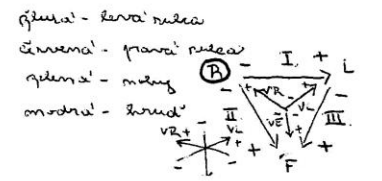 žlutá - levá ruka
červená - pravá ruka
zelená - nohy
modrá - hruď
R - I. + L
- VR VL -
II VE III.
VR+ - VL +
+ F +